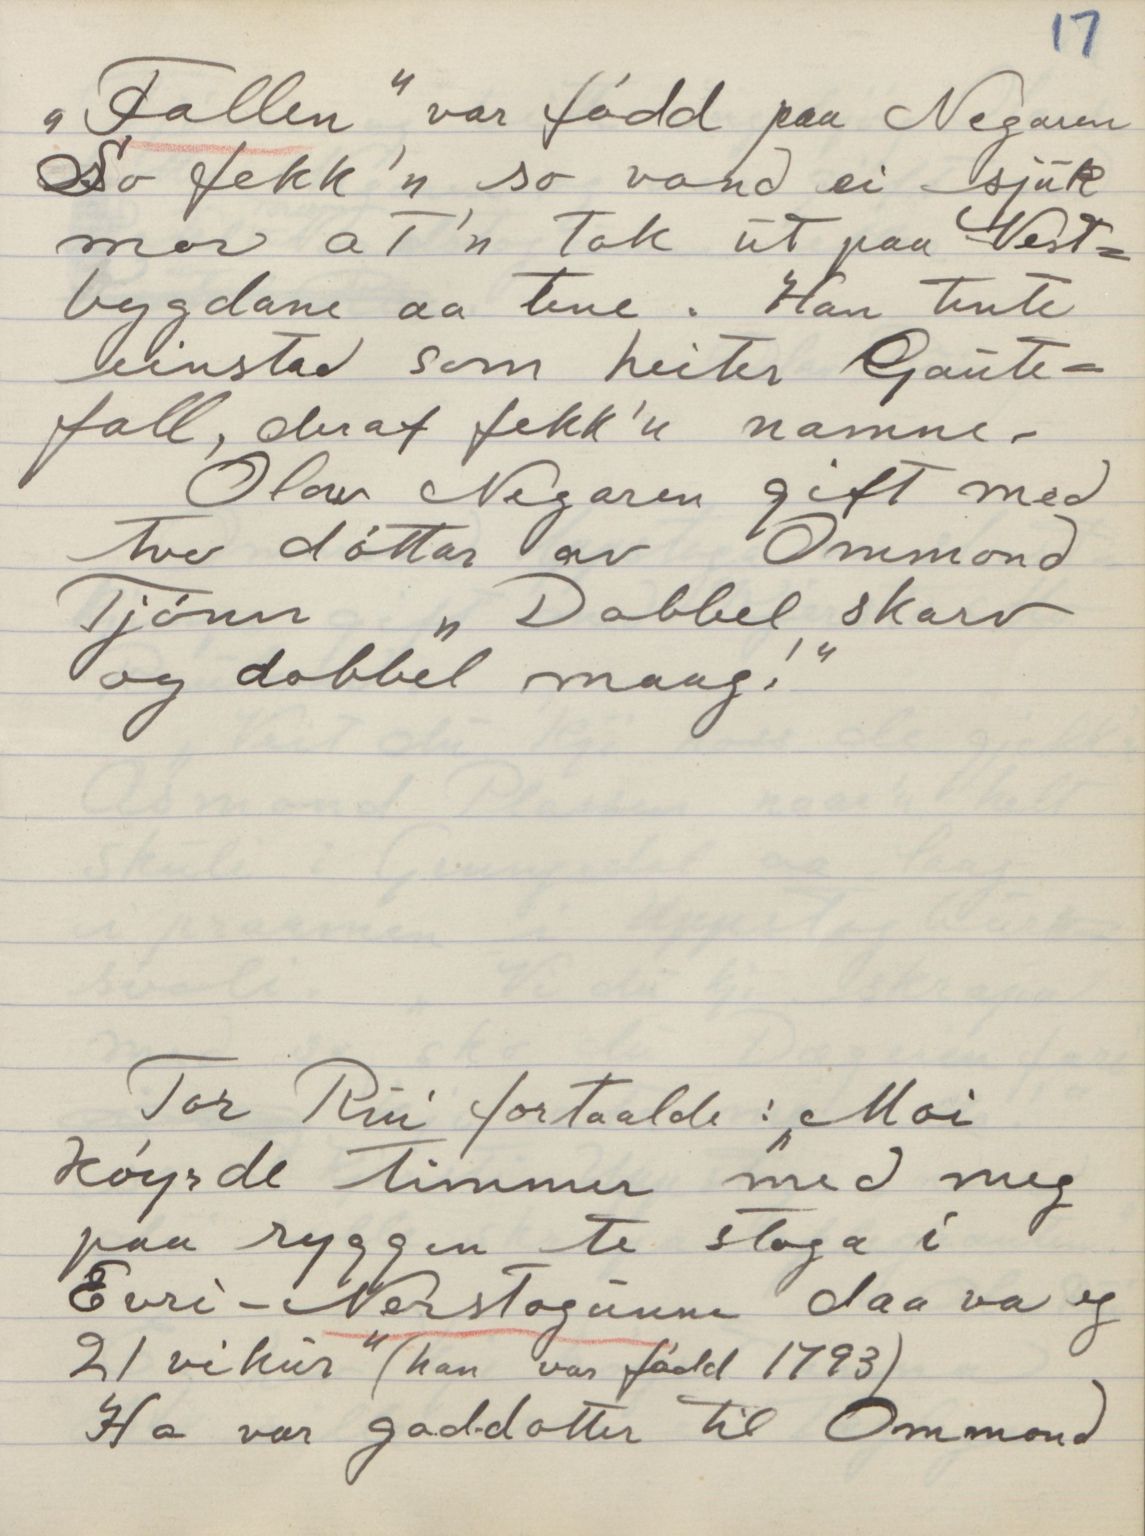 17
„Fallen" var fódd paa Negaren
So fekk'n so vond ei sjuk
mor at'n tok ut paa Vest=
bygdane aa tene. Han tente
einstad som heiter Gaute=
fall, deraf fekk'n namne.
Olav Negaren gift med
tvo dóttar av Ommond
Tjónn „Dobbel skarv
og dobbel maag!"
Tor Rui fortaalde: „Moi
kóyrde timmer med meg
paa ryggen te stoga i
Evri-Nerstogunne daa va eg
21 vikur" (han var fódd 1793)
Ho var goddotter til Ommond